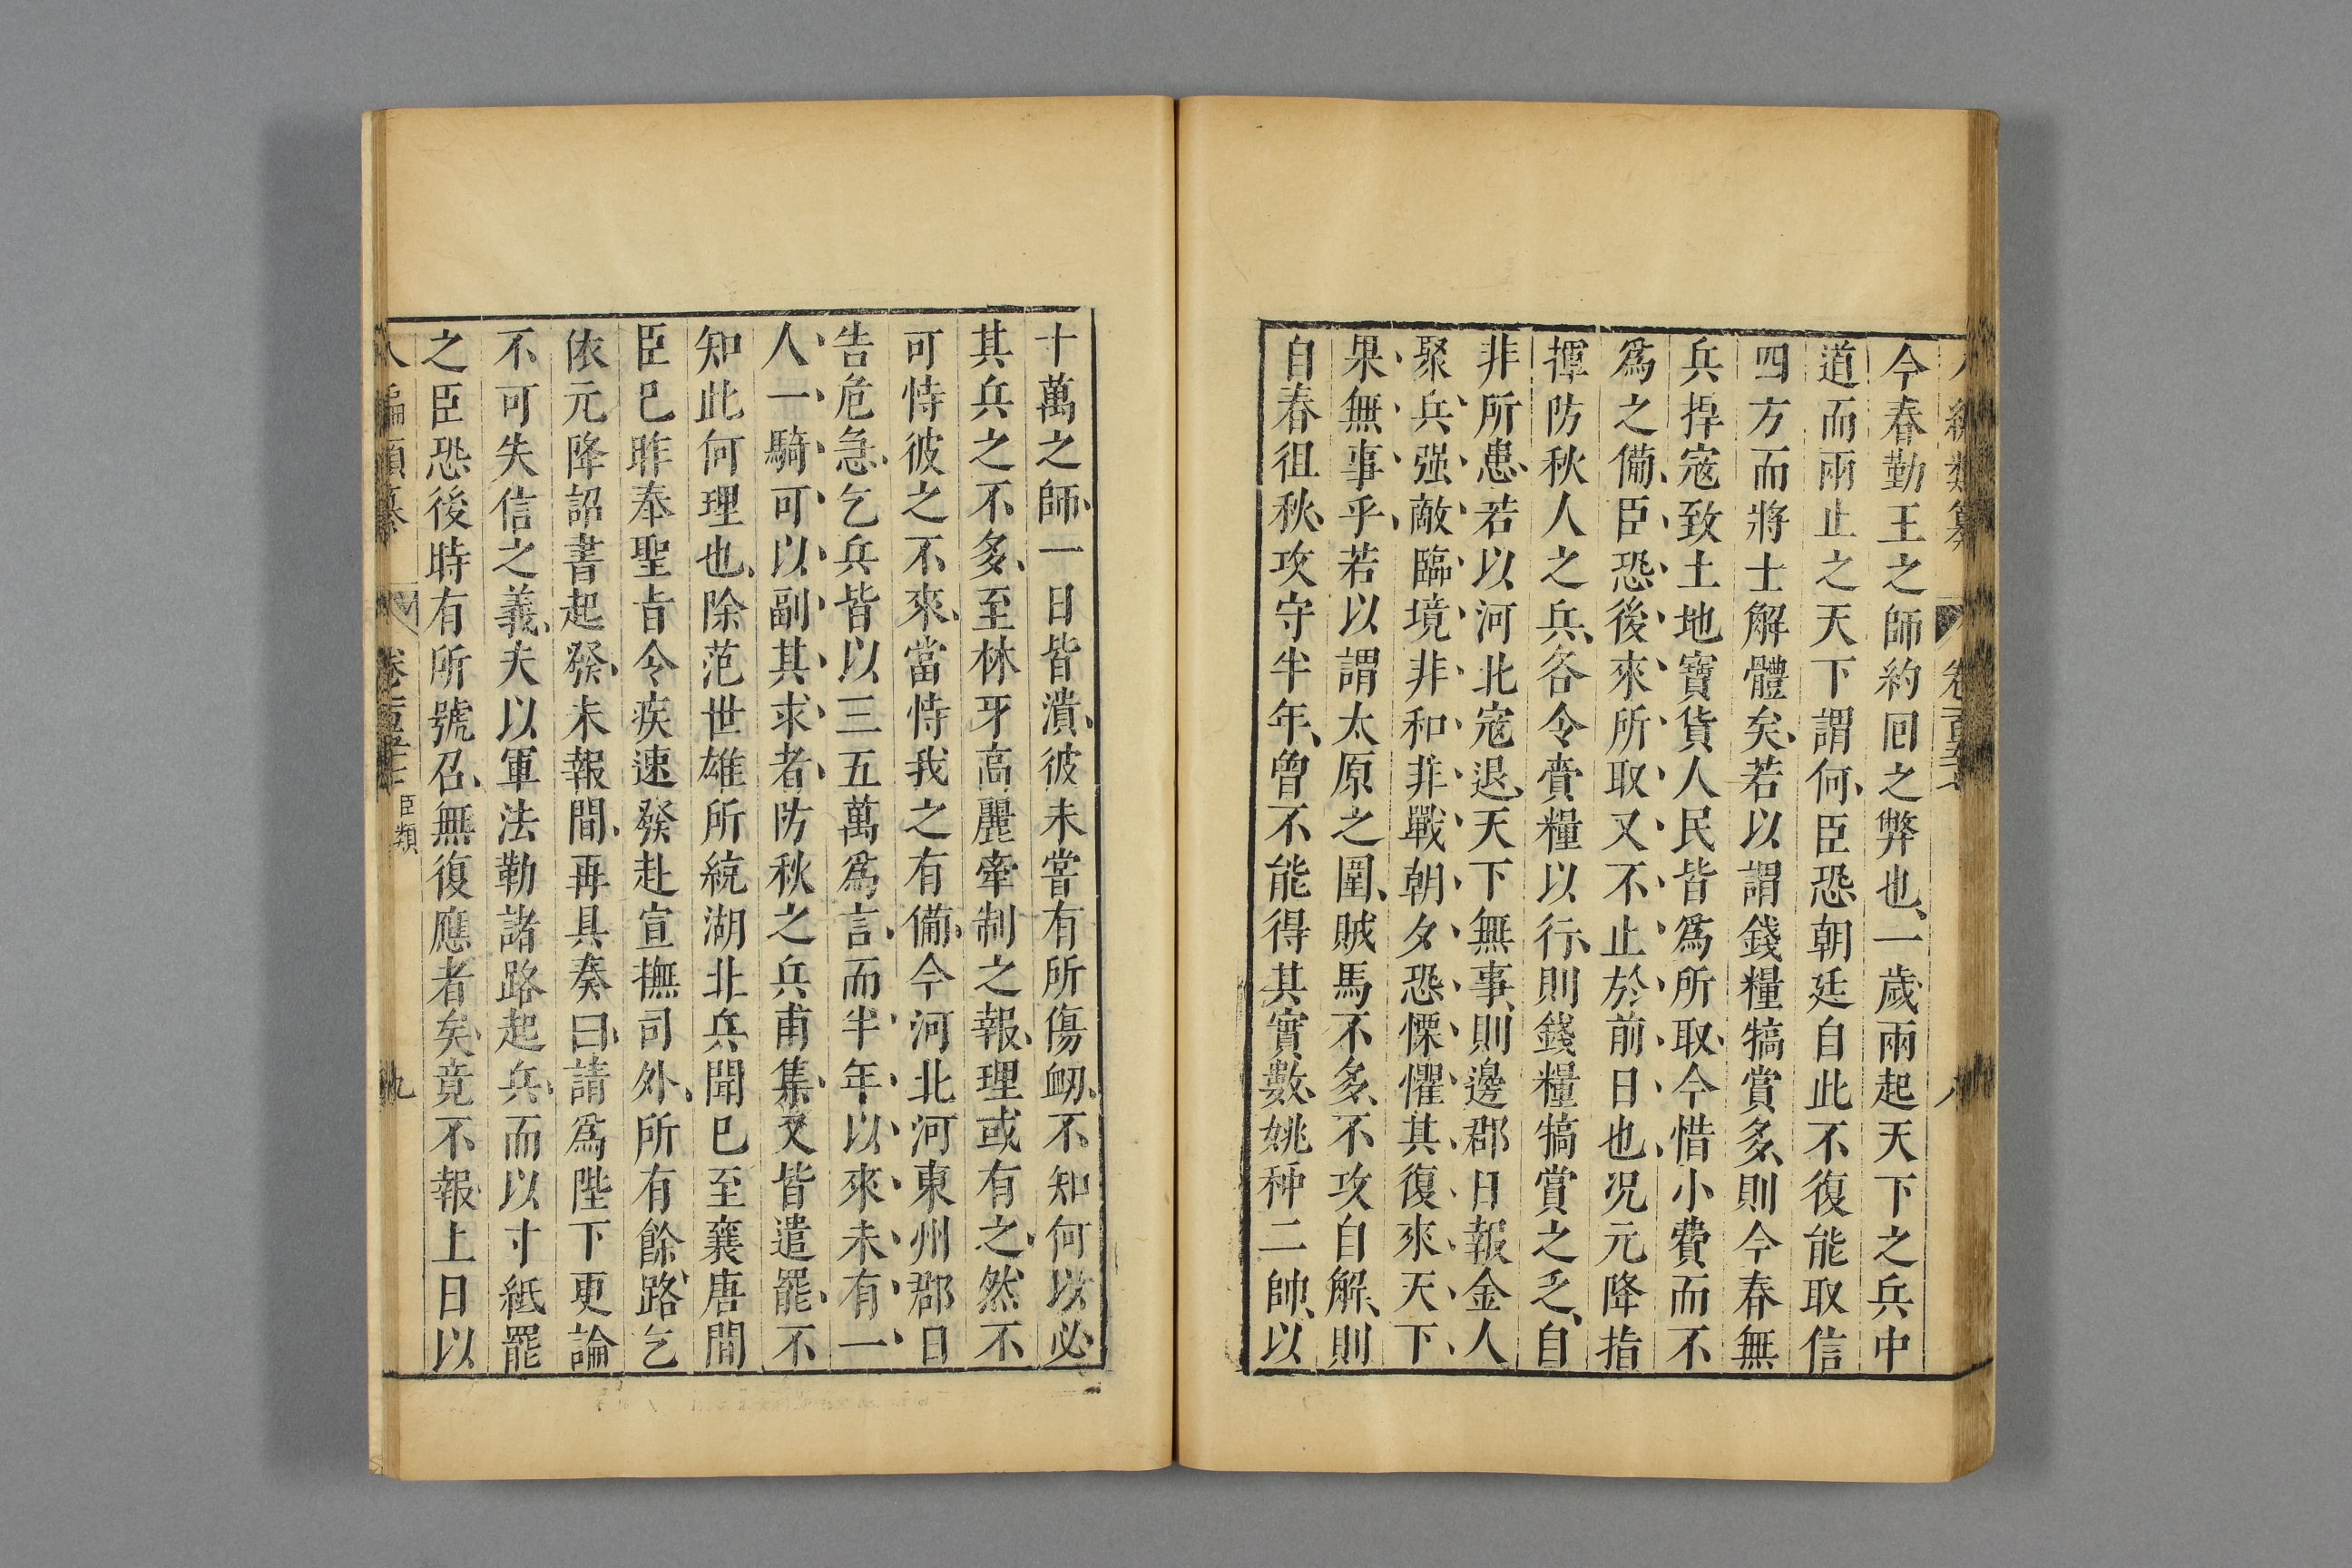 今春勤王之師約囘之弊也一歲兩起天下之兵中
道而兩止之天下謂何臣恐朝廷自此不復能取信
四方而將士解體矣若以謂錢糧犒賞多則今春無
兵捍寇致土地寶貨人民皆爲所取今惜小費而不
爲之備臣恐後來所取又不止於前日也况元降指
揮防秋人之兵各令賫糧以行則錢糧犒賞之乏自
非所患若以河北寇退天下無事則邊郡日報金人
聚兵强敵臨境非和非戰朝夕恐慄懼其復來天下
果無事乎若以謂太原之圍賊馬不多不攻自解則
自春徂秋攻守半年曾不能得其實數姚种二帥以
十萬之師一日皆潰彼未嘗有所傷衂不知何以必
其兵之不多至林牙高麗牽制之報理或有之然不
可恃彼之不來當恃我之有備今河北河東州郡日
告危急乞兵皆以三五萬爲言而半年以來未有一
人一騎可以副其求者防秋之兵甫集又皆遣罷不
知此何理也除范世雄所統湖北兵聞已至襄唐間
臣已昨奉聖旨令疾速發赴宣撫司外所有餘路乞
依元降詔書起發未報間再具奏曰請爲陛下更論
不可失信之義夫以軍法勒諸路起兵而以寸紙罷
之臣恐後時有所號召無復應者矣竟不報上日以
臣類
九